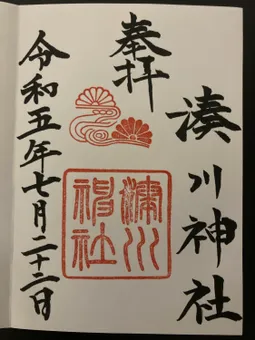 奉拝
湊川神社
湊川神社
令和五年七月二十二日